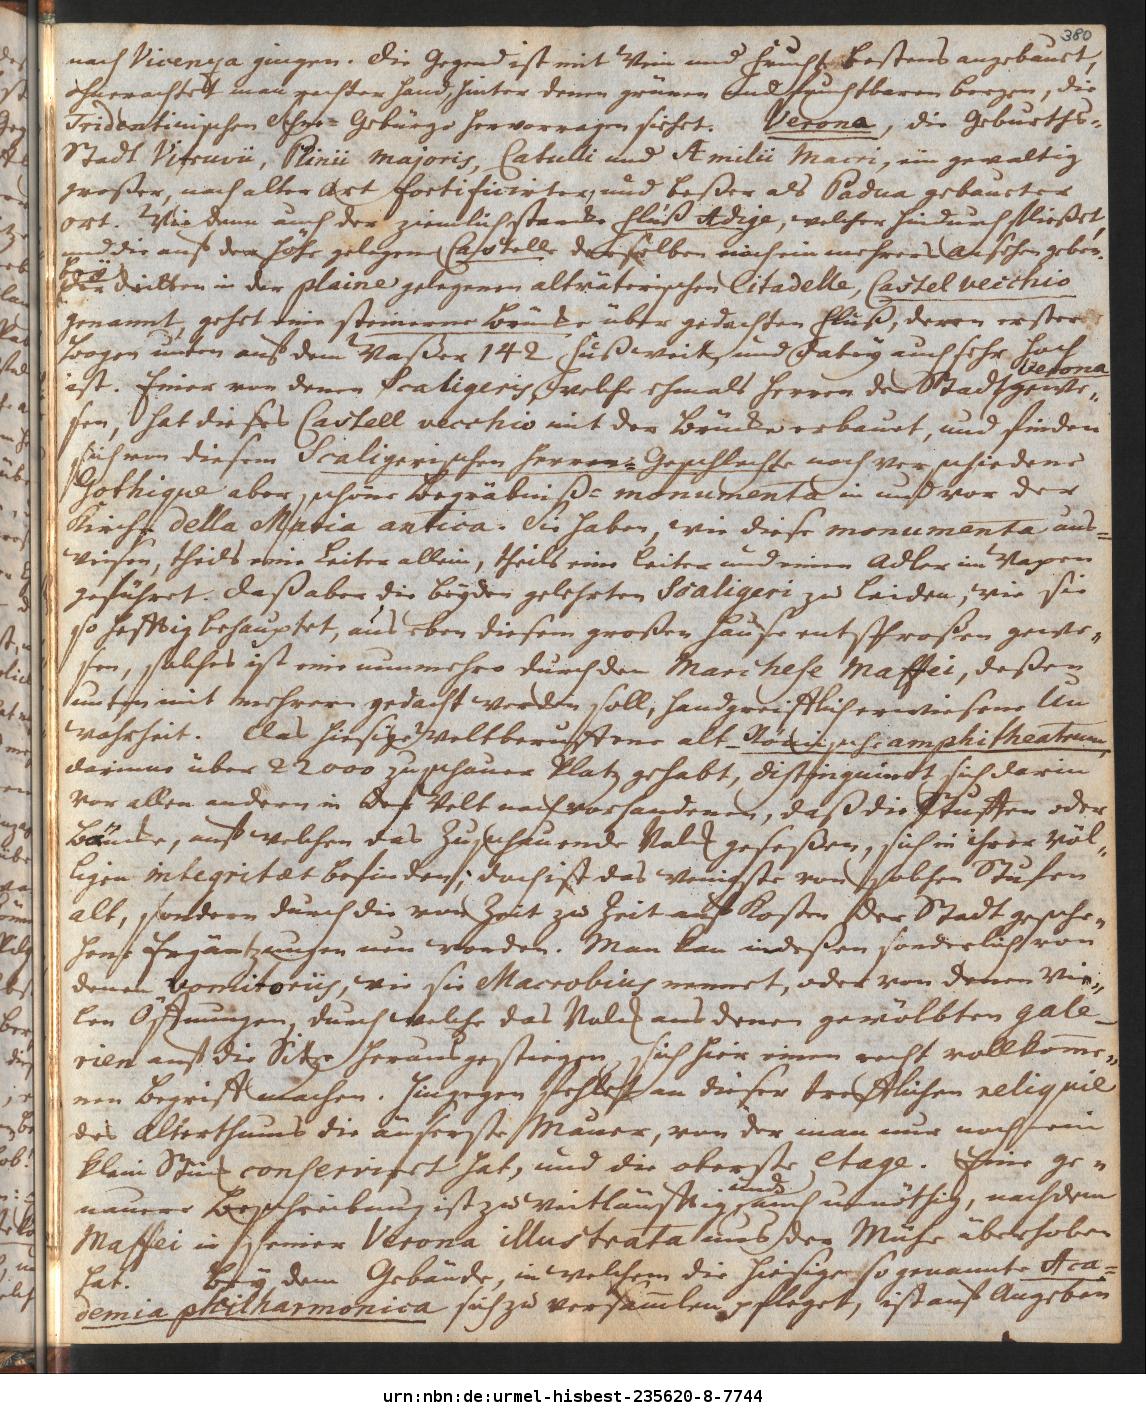 380
nach Vicenza gingen. Die Gegend ist mit Wein und Frucht bestens angebauet,
ohnerachtet man rechter Hand, hinter denen grünen und fruchtbaren Bergen, die
Tridentinischen Schne= Gebürge hervorragen siehet. Verona, die Geburths=
Stadt Vitruvii, Plinii majoris, Catulli und Æmilii Macri, ein gewaltig
großer, nach alter Art fortificirter, und beßer als Padua gebaueter
ort. Wie denn auch der ziemlich starcke Fluß Adige, welcher hindurch fließet,
und die auf der Höhe gelegene Castelle derselben noch ein mehrers Ansehen geben.
Bey
der dritten in der plaine gelegenen altväterischen Citadelle, Castel vecchio
genannt, gehet eine steinerne Brücke über gedachten Fluß, deren erster
Bogen unten auf dem Waßer 142 Fuß weit, und dabey auch sehr hoch
Verona
ist. Einer von denen Scaligeris, welche ehmals Herren der Stadt gewe„
sen, hat dieses Castell vecchio mit der Brücke erbauet, und finden
sich von diesem Scaligerischen Herren= Geschlechte noch verschiedene
Gothique aber schöne Begräbniß= monumenta in und vor der
Kirche della Maria antica. Sie haben, wie diese monumenta aus=
weisen, theils eine Leiter allein, theils eine Leiter und einen Adler im Wapen
geführet. Daß aber die beyden gelehrten Scaligeri zu Leiden, wie sie
so hefftig behauptet, aus eben diesem großen Hause entsproßen gewe„
sen, solches ist eine nunmehro durch den Marchese Maffei, deßen
unten mit mehrern gedacht werden soll, handgreifflich erwiesene Un
wahrheit. Das hiesige weltberuffene alt-Römische amphitheatrum,
darinne über 22000 Zuschauer Platz gehabt, distinguiret sich darin
vor allen andern in der Welt noch vorhandenen, daß die Stuffen oder
Bäncke, auf welchen das Zuschauende Volck geseßen, sich in ihrer völ„
ligen integritæt befinden; doch ist das wenigste von solchen Stufen
alt, sondern durch die von Zeit zu Zeit auf Kosten der Stadt gesche„
hene Ergäntzungen neu worden. Man kan indeßen sonderlich von
denen vomitoriis, wie sie Macrobius nennet, oder von denen Vie„
len Öffnungen, durch welche das Volck aus denen gewölbten gale-
rien auf die Sitze herausgestiegen, sich hier einen recht vollkom̅e„
nen Begriff machen. Hingegen fehlet an dieser trefflichen reliquie
des Alterthums die äuserste Mauer, von der man nur noch ein
klein Stück conserviret hat, und die oberste etage. Eine ge„
nauere Beschreibung ist zu weitläufftig, und auch unnöthig, nachdem
Maffei in seiner Verona illustrata uns der Mühe überhoben
hat. Bey dem Gebäude, in welchem die hiesige so genannte Aca=
demia philharmonica sich zu versam̅len pfleget, ist auf Angeben
urn:nbn:de:urmel-hisbest-235620-8-7744